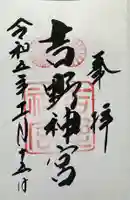 奉拝
吉野神宮
令和五年十一月十五日